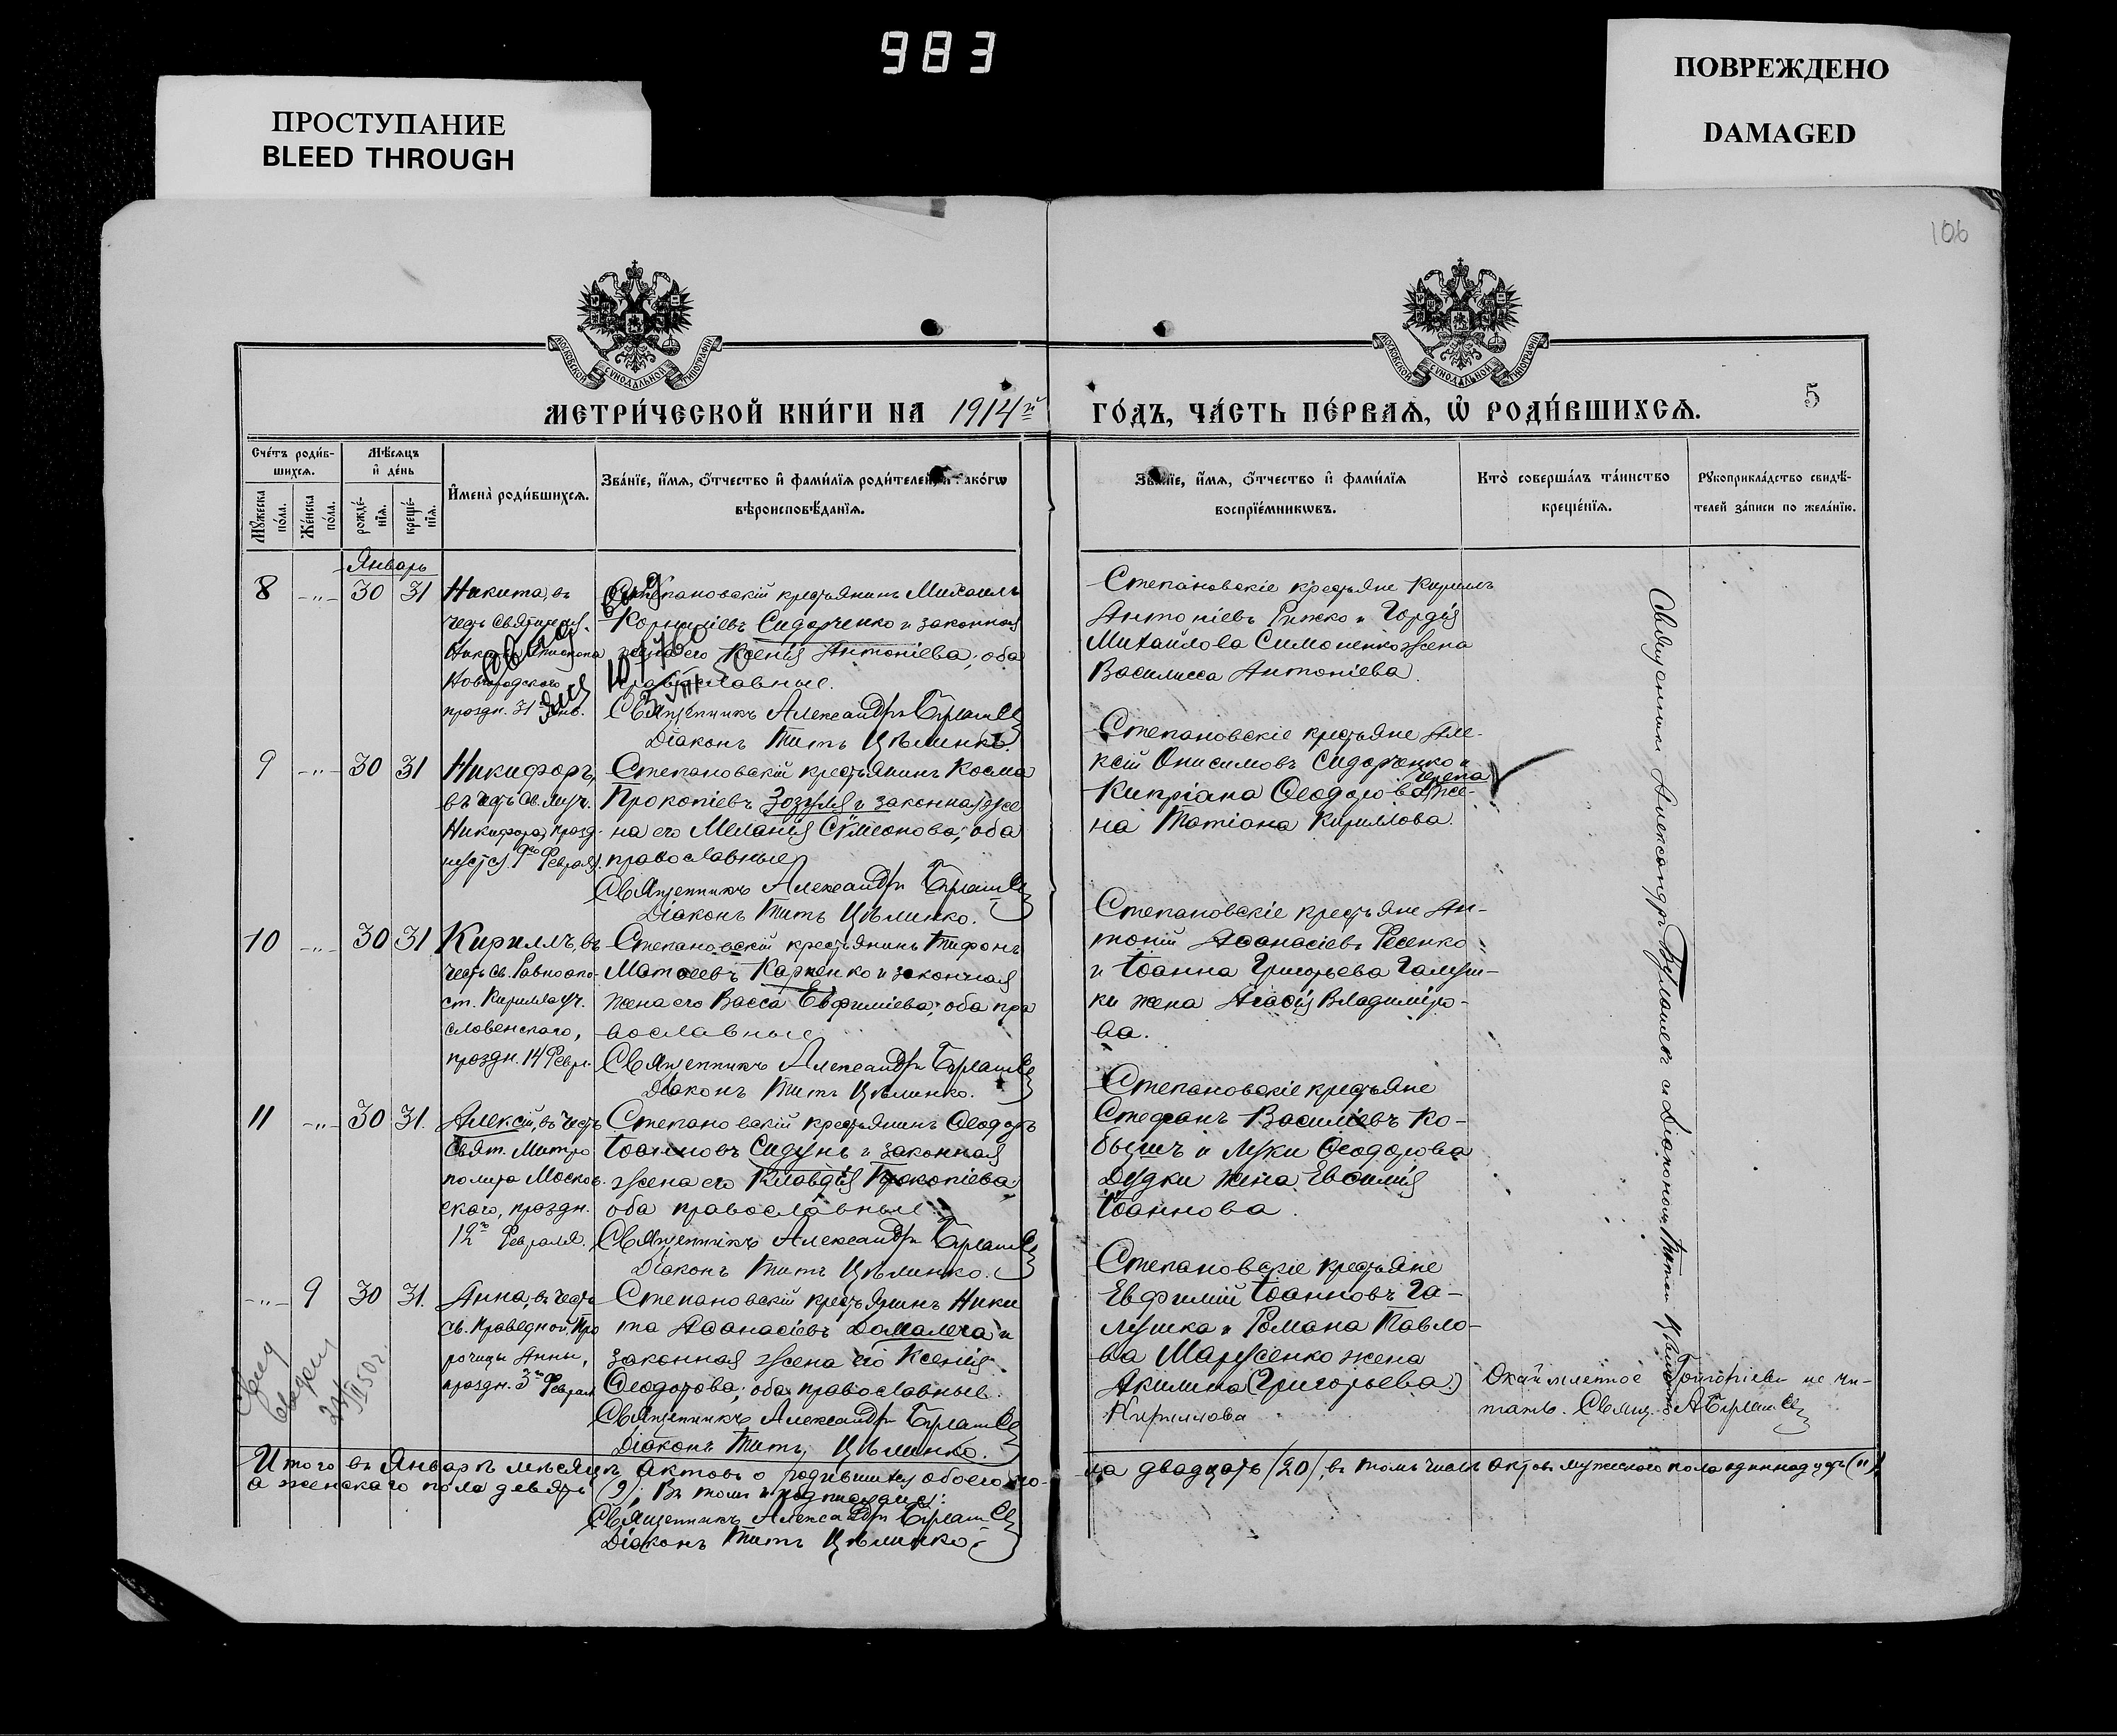 983
ПРОСТУПАНИЕ
BLEED THROUGH
ПОВРЕЖДЕНО
DAMAGED
106
МОСКОВСКОЙ СѴНОДАЛЬНОЙ ТИПОГРАФІИ
МОСКОВСКОЙ СѴНОДАЛЬНОЙ ТИПОГРАФІИ
МЕТРИ́ЧЕСКОЙ КНИ́ГИ НА 1914й
ГО́ДЪ, ЧА́СТЬ ПЕ́РВАѦ, Ѡ҆ РОДИ́ВШИХСѦ.
5
Сче́тъ роди́в-
шихсѧ.
Мѣ́сѧцъ
и҆ де́нь
Мꙋ́жеска по́ла.
Же́нска по́ла.
рожде́-нїѧ.
креще́-нїѧ.
И҆мена̀ роди́вшихсѧ.
Зва́нїе, и҆́мѧ, ѻ҆́тчество и҆ фами́лїѧ роди́телей, и҆ како́гѡ
вѣроисповѣ́данїѧ.
Зва́нїе, и҆́мѧ, ѻ҆́тчество и҆ фами́лїѧ
воспрїе́мникѡвъ.
Кто̀ соверша́лъ та́инство
креще́нїѧ.
Рꙋкоприкла́дство свидѣ́-
телей за́писи по жела́нїю.
Январь
8 -"- 30 31
Никита, въ
честь Святителя
Никиты Епископа
Новгородского
праздн. 31 Янв.
Степановскій крестьянинъ Михаилъ
Корниліевъ Сидорченко и законная
жена его Ксенія Антоніева; оба
православные.
Священникъ Александръ
Діаконъ Титъ Цѣлинко.
Степановскіе крестьяне Кирилъ
Антоніевъ Рижко и Гордія
Михайлова Симоненко жена
Василисса Антоніева.
9 -"- 30 31
Никифоръ,
въ честь Св. муч.
Никифора, празд-
нуется 9го Февраля.
Степановскій крестьянинъ Косма
Прокопіевъ Зозуля и законная же
на его Меланія Сѵмеонова; оба
православные
Священникъ Александръ
Діаконъ Титъ Цѣлинко.
Степановскіе крестьяне Але-
ксій Онисимовъ Сидорченко и
Кипріана Ѳеодорова же-
на Татіана Кириллова.
10 -"- 30 31
Кириллъ, въ
честь Св. Равноапо-
ст. Кирилла уч.
Словенскаго,
праздн. 14 Февр.
Степановскій крестьянинъ Тифонъ
Матѳеевъ Карпенко и законная
жена его Васса Евфиміева; оба пра
вославные
Священникъ Александръ
Діаконъ Титъ Цѣлинко.
Степановскіе крестьяне Ан-
тоній Аѳанасіевъ Ресенко
и Іоанна Григорьева Галуш-
ки жена Агаѳія Владиміро-
ва.
11 -"- 30 31.
Алексій, въ честь
Свят. Митро
полита Москов-
скаго, праздн.
12го Февраля.
Степановскій крестьянинъ Ѳеодоръ
Іоанновъ Сидунъ и законная
жена его Клавдія Прокопіева
оба православные
Священникъ Александръ
Діаконъ Титъ Цѣлинко.
Степановскіе крестьяне
Стефанъ Василіевъ Ко-
бышъ и Луки Ѳеодорова
Дудки жена Евѳимія
Іоаннова.
-"- 9 30 31.
Анна, въ честь
св. Праведной Про
рочицы Анны,
праздн. 3го Февраля
Степановскій крестьянинъ Ники
та Аѳанасіевъ Домалега и
законная жена его Ксенія
Ѳеодорова; оба православные.
Священникъ Александръ
Діаконъ Титъ Цѣлинко.
Степановскіе крестьяне
Евфимій Іоанновъ Га-
лушка и Романа Павло-
ва Марусенко жена
Акилина (Григорьева.)
Кириллова
Окаймленное Григоріева не чи-
тать. Свящ.
Священникъ Александръ и Діаконъ Титъ Цѣлинко
Итого въ Январѣ мѣсяцѣ актовъ о родившихся обоего по-
ла двадцать /20/, въ томъ числѣ актовъ мужескаго пола одиннадцать (11),
а женскаго пола девять (9); Въ томъ и подписуемся:
Священникъ Александръ
Діаконъ Титъ Цѣлинко